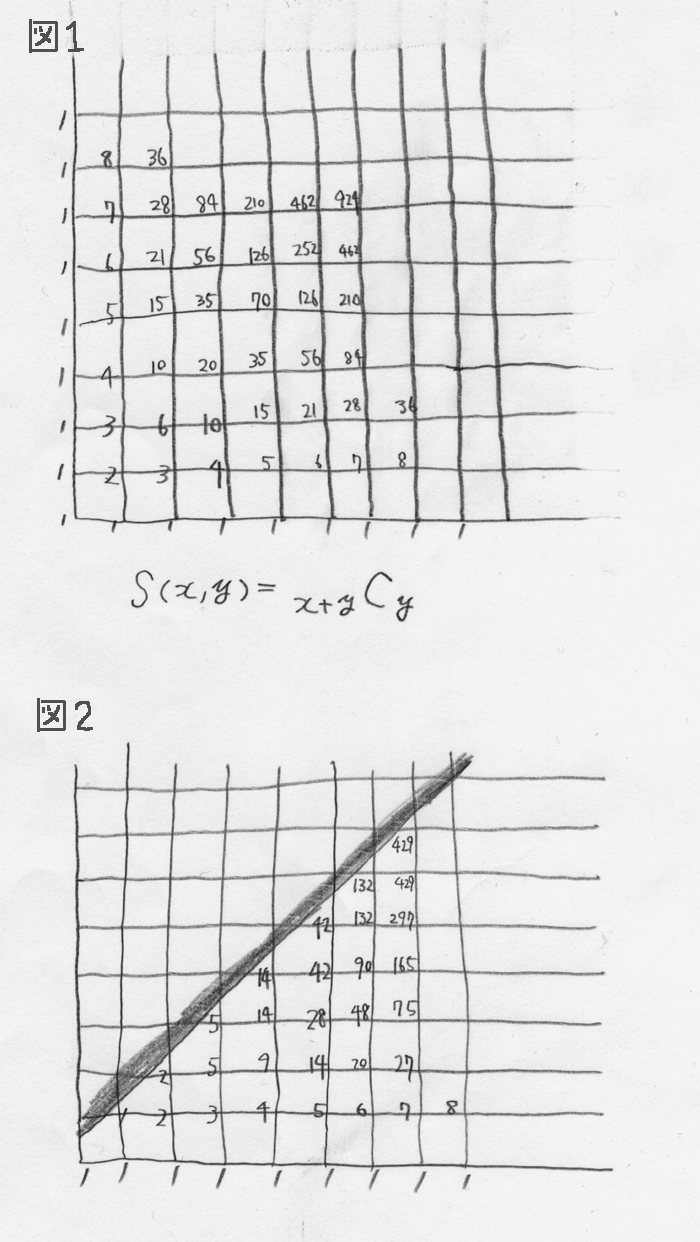 図1
1
1 8 36
1 7 28 84 210 462 924
1 6 21 56 126 252 462
1 5 15 35 70 126 210
1 4 10 20 35 56 84
1 3 6 10 15 21 28 36
1 2 3 4 5 6 7 8
1 1 1 1 1 1 1 1 1
S(x,y)= x+yCy
図2
429
132 429
42 132 297
14 42 90 165
5 14 28 48 75
2 5 9 14 20 27
1 2 3 4 5 6 7 8
1 1 1 1 1 1 1 1 1